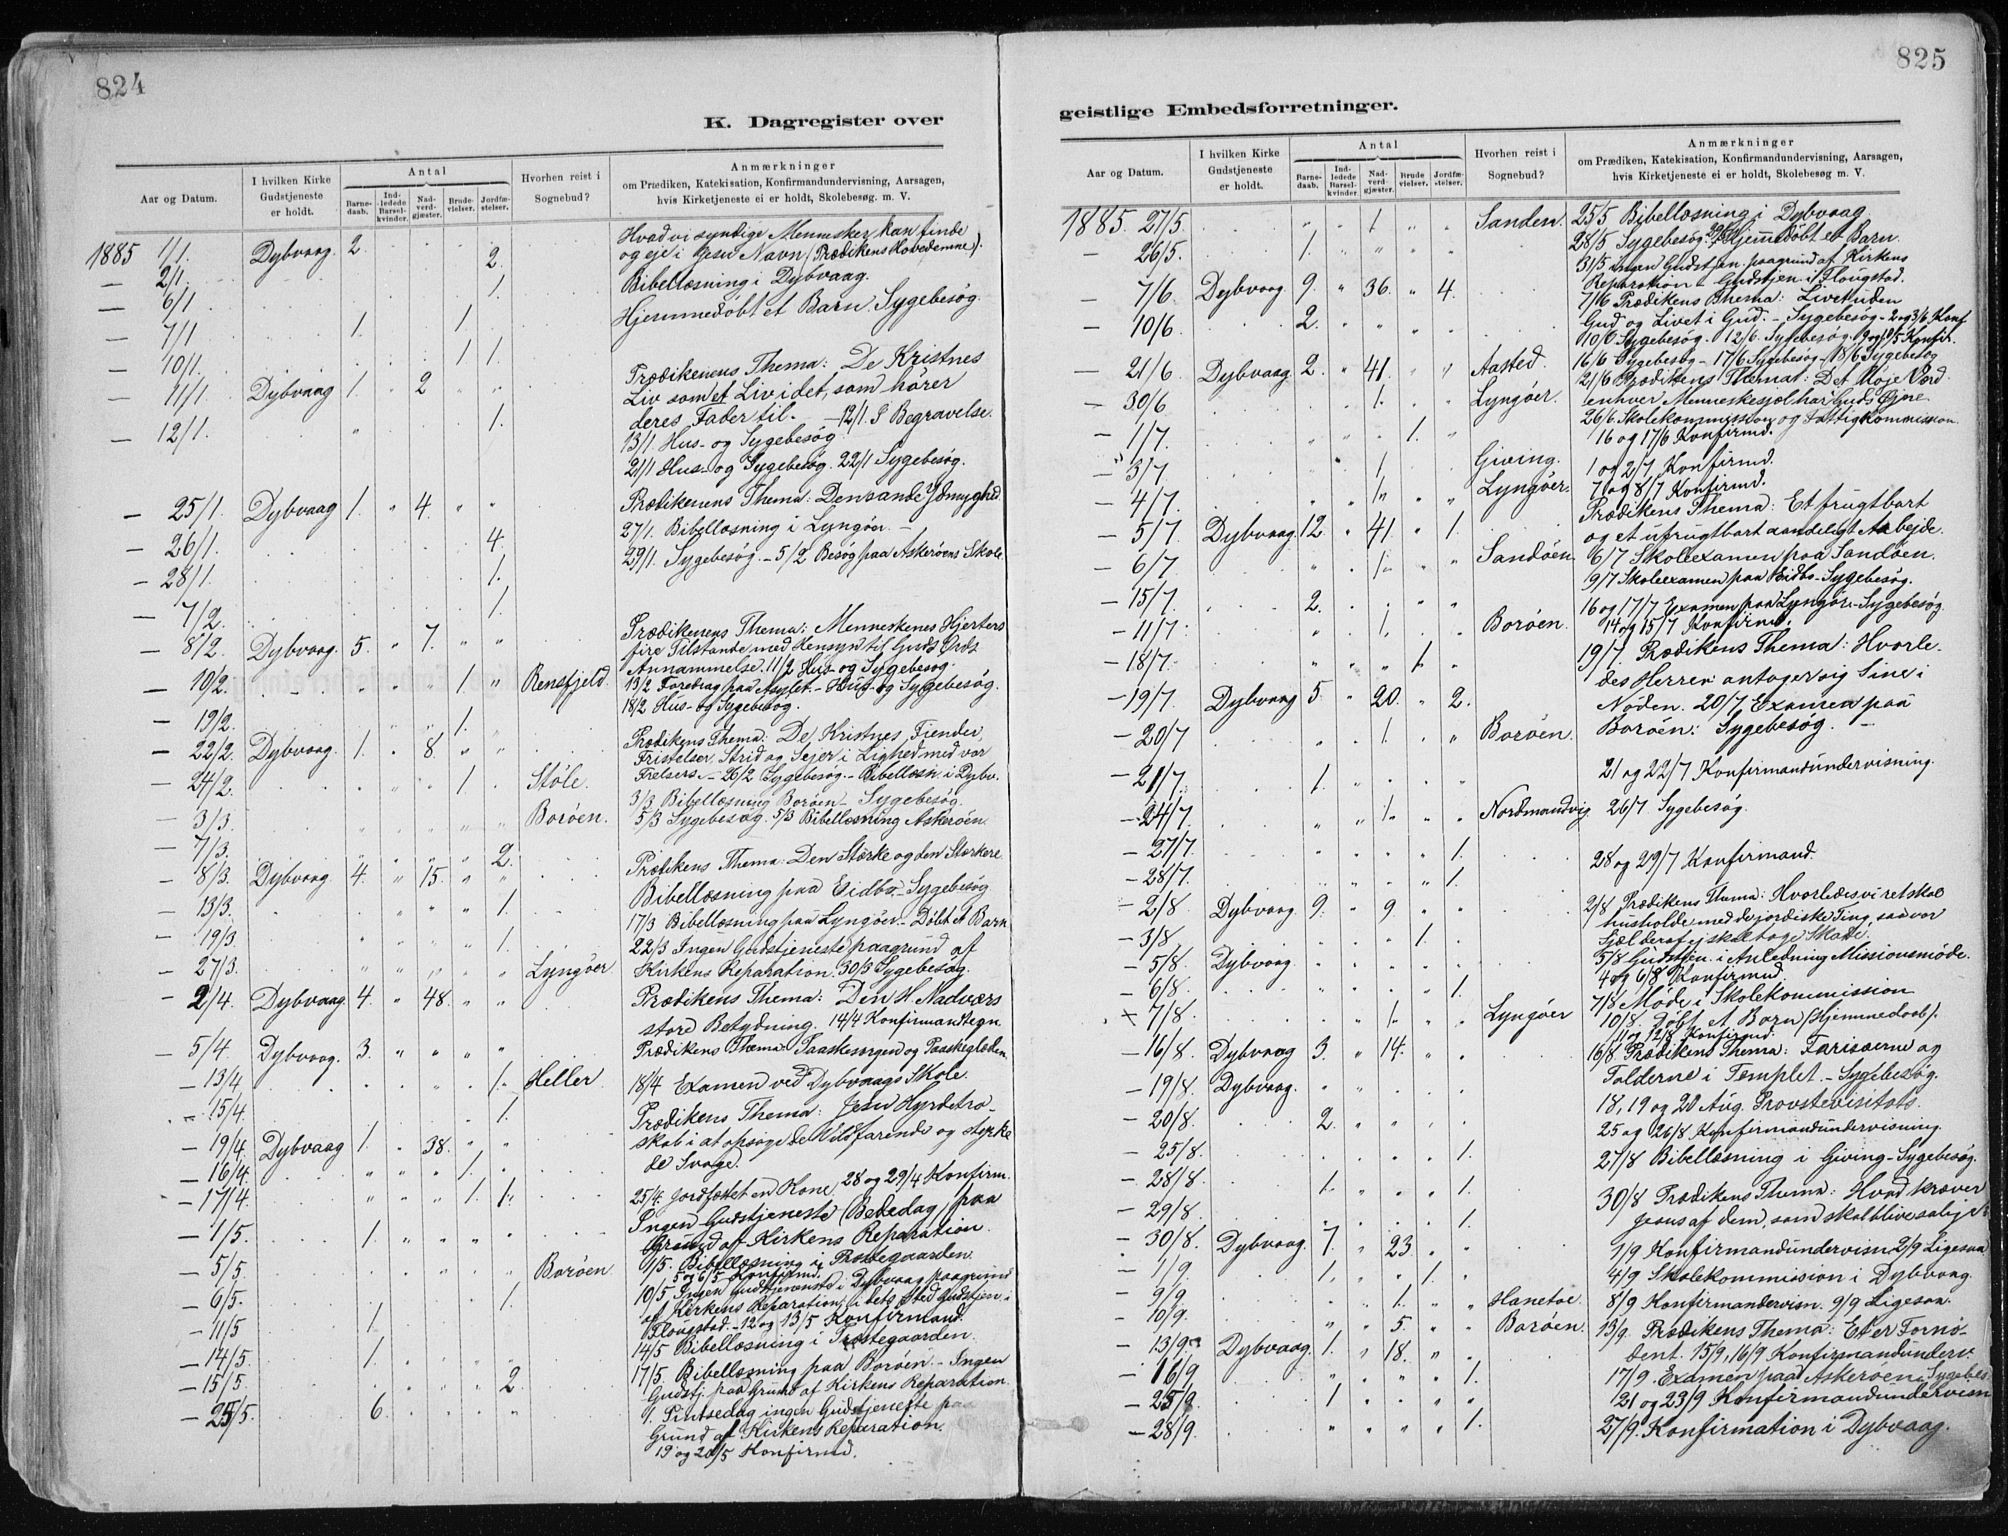 824
K. Dagregister over
Aar og Datum.
I hvilken Kirke Gudstjeneste er holdt.
Antal
Barnedaab.
Indledede Barselkvinder.
Nadverdgjæster.
Brudevielser.
Jordfæstelser.
Hvorhen reist i Sognebud?
Anmærkninger
om Prædiken, Katekisation, Konfirmandundervisning, Aarsagen,
hvis Kirketjeneste ei er holdt, Skolebesøg. m. V.
1885 1/1. Dybvaag. 2. 2. Hvad vi syndige Mennesker kan finde
og eje i Jesu Navn (Prædikens Hovedemne).
— 2/1. 1. Bibellæsning i Dybvaag.
— 6/1 Hjemmedøbt et Barn. Sygebesøg.
— 7/1 1. 1.
— 10/1. 1. 1. Prædikenens Thema: De Kristnes
— 11/1. Dybvaag 1. 2 Liv som et Liv i det, som hører
deres Fader til. — 12/1. Begravelse.
— 12/1. 1. 13/1 Hus- og Sygebesøg
21/1 Hus- og Sygebesøg. 22/1 Sygebesøg.
— 25/1. Dybvaag 1. 4. Prædikenens Thema: Den sande Ydmyghed.
27/1. Bibellæsning i Lyngøer. —
— 26/1. 4. 29/1. Sygebesøg — 5/2 Besøg paa Askerøens Skole
— 28/1. 1.
— 7/2. 1.
— 8/2. Dybvaag. 5. 7. Prædikenens Thema: Menneskenes Hjerters
fire Tilstande med Hensyn til Guds Ords
Annammelse. 11/2 Hus- og Sygebesøg.
— 10/2. 1. Rensfjeld. 13/2 Foredrag paa Asylet. — Hus- og Sygebesøg.
18/2 Hus- og Sygebesøg.
— 19/2. 1.
— 22/2. Dybvaag. 1. 8. Prædikens Thema: De Kristnes Fiender,
Fristelser, Strid og Sejer i Lighed med vor
— 24/2. 1. Støle. Frelsers. — 26/2 Sygebesøg. — Bibellæsn. i Dybv.
3/3 Bibellæsning Borøen — Sygebesøg.
— 3/3. Borøen. 5/3 Sygebesøg. 5/3 Bibellæsning Askerøen.
— 7/3. 2.
— 8/3. Dybvaag. 4. 15. Prædikens Thema: Den Stærke og den Stærkere
Bibellæsning paa Eidbo. Sygebesøg
— 13/3. 1. 17/3 Bibellæsning paa Lyngøer — Døbt et Barn
— 19/3. 1. 22/3 Ingen Gudstjeneste paagrund af
— 27/3. Lyngøer Kirkens Reparation. 30/3 Sygebesøg.
— 2/4. Dybvaag. 4. 48. Prædikens Thema: Den H. Nadvers
store Betydning. 14/4 Konfirmandtegn
— 5/4. Dybvaag. 3. Prædikens Thema: Paaskesorgen og Paaskeglæden.
— 13/4 1. Heller. 18/4 Examen ved Dybvaags Skole.
— 15/4. 1. Prædikens Thema: Jesu Hyrdetro-
— 19/4. Dybvaag 1. 38. skab i at opsøge de Vildfarende og styrke
de Svage.
— 16/4. 1.
— 17/4. 1. 1. 25/4. Jordfæstet en Kone. 28 og 29/4 Konfirm.
Ingen Gudstjeneste (Bededag) paa
— 1/5. 1. Grund af Kirkens Reparation.
— 5/5. Borøen. 1/5. Bibellæsning i Præstegaarden.
5 og 6/5 Konfirmd.
— 6/5. 1. 10/5 Ingen Gudstjeneste i Dybvaag paagrund
af Kirkens Reparation; i dets Sted Gudstjen. i
— 11/5 1. Flougstad. — 12 og 13/5 Konfirmand.
— 14/5. 1. 14/5 Bibellæsning i Præstegaarden.
— 15/5. 2. 17/5. Bibellæsning paa Borøen. — Ingen
Gudstj. paa Grund af Kirkens Reparation.
— 25/5. 6. 1. Pintsedag ingen Gudstjeneste paa
Grund af Kirkens Reparation.
19 og 20/5 Konfirmd.
825
geistlige Embedsforretninger.
Aar og Datum.
I hvilken Kirke Gudstjeneste er holdt.
Antal
Barnedaab.
Indledede Barselkvinder.
Nadverdgjæster.
Brudevielser.
Jordfæstelser.
Hvorhen reist i Sognebud?
Anmærkninger
om Prædiken, Katekisation, Konfirmandundervisning, Aarsagen,
hvis Kirketjeneste ei er holdt, Skolebesøg m. V.
1885. 27/5. 1 Sanden. 25/5 Bibellæsning i Dybvaag
— 26/5. 1. 28/5 Sygebesøg. Hjemmedøbt et Barn.
31/5 Ingen Gudstjen. paagrund af Kirkens
Reparation — Gudstjen. i Flougstad.
— 7/6. Dybvaag 9. 36. 4. 7/6 Prædikens Thema: Livet uden
— 10/6. 2. Gud og Livet i Gud. — Sygebesøg — 2 og 3/6 Konf
10/6 Sygebesøg. 12/6. Sygebesøg. Konfir.
— 21/6 Dybvaag. 2. 41. Aasted. 16/6 Sygebesøg — 17/6 Sygebesøg — 18/6 Sygebesøg
21/6 Prædikens Thema: Det Høje Værd
— 30/6 1. Lyngøer. enhver Menneskesjæl har i Guds Øjne.
26/6 Skolekommission og Fattigkommission.
— 1/7. 1. 16 og 17/6 Konfirmd.
— 3/7. 1. Giving. 1 og 2/7 Konfirmd.
— 4/7. 1. Lyngøer. 7 og 8/7 Konfirmd.
— 5/7. Dybvaag 12. 41. 1. Prædikens Thema: Et frugtbart
og et ufrugtbart aandeligt Arbejde.
— 6/7 1. Sandøen. 6/7 Skoleexamen paa Sandøen.
9/7 Skoleexamen paa Eidbo — Sygebesøg.
— 15/7. 2. 16 og 17/7 Examen paa Lyngør — Sygebesøg.
— 11/7. 1. Borøen. 14 og 15/7 Konfirmd.
— 18/7. 1. 19/7. Prædikens Thema: Hvorle-
— 19/7. Dybvaag 5. 20. 2. des Herren antager sig Sine i
Nøden. 20/7 Examen paa
— 20/7 1. Borøen. Borøen: Sygebesøg. —
— 21/7. 1. 21 og 22/7 Konfirmandundervisning.
— 24/7. 1. Nordmandvig 26/7 Sygebesøg.
— 27/7. 1.
— 28/7. 1. 28 og 29/7 Konfirmand.
— 2/8 Dybvaag. 9. 9 2/8 Prædikens Thema: Hvorledes vi ret skal
husholde med de jordiske Ting, saa vor
— 3/8 1. Sjæl derfor ej skal tage Skade.
— 5/8. Dybvaag 5/8 Gudstjen. i Anledning Missionsmøde.
— 6/8. 1. 4 og 6/8 Konfirmd
— 7/8. 1. Lyngøer 7/8 Møde i Skolekommission
10/8. Døbt et Barn (Hjemmedaab).
11 og 12/8 Konfirmd.
— 16/8. Dybvaag 3. 14. 16/8 Prædikens Thema: Farisæerne og
— 19/8. Dybvaag. Tolderne i Templet. — Sygebesøg.
— 20/8. 2. 18, 19 og 20 Aug. Provstevisitats.
— 25/8. 1. 25 og 26/8 Konfirmandundervisning.
— 28/8. 1. 1. 27/8 Bibellæsning i Giving — Sygebesøg.
— 29/8. 1. 30/8 Prædikens Thema: Hvad kræver
Jesus af dem, som skal blive salige?
— 30/8. Dybvaag. 7. 23. 1/9 Konfirmandundervisn. 2/9 Ligesaa
— 1/9. 1. 1. 4/9 Skolekommision i Dybvaag.
— 9/9. 1. Hanetoe. 8/9 Konfirmandervisn. 9/9 Ligesaa.
— 10/9. 5. Borøen. 13/9. Prædikens Thema: Et er Fornø-
— 13/9. Dybvaag. 1. 18. dent. 15/9, 16/9 Konfirmandunderv.
— 16/9. 1. 17/9. Examen paa Askerøen. Sygebes.
— 25/9 1 21 og 23/9 Konfirmandundervisn
— 28/9. 1. 27/9. Konfirmation i Dybvaag.